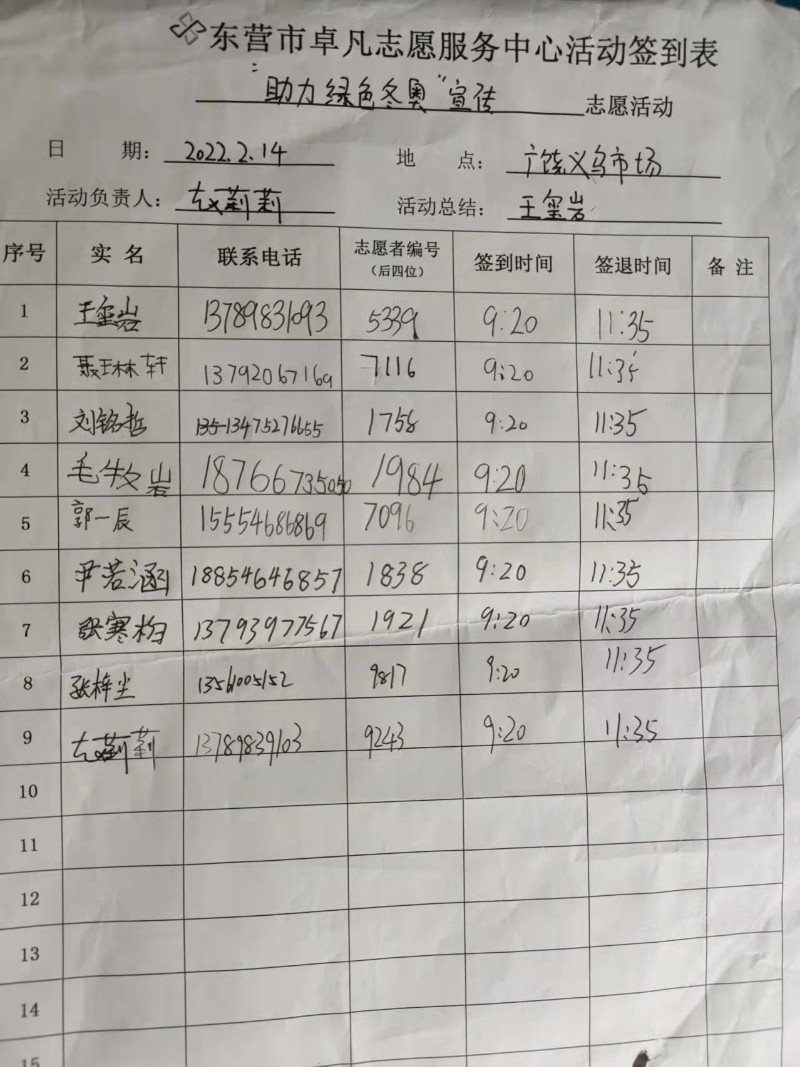 东营市卓凡志愿服务中心活动签到表
"助力绿色冬奥"宣传 志愿活动
日 期: 2022.2.14 地 点: 广饶义乌市场
活动负责人: 莉莉 活动总结: 王玺岩
序号 实名 联系电话 志愿者编号(后四位) 签到时间 签退时间 备注
1 王玺岩 13789831093 5339 9:20 11:35
2 聂琳轩 13792067169 7116 9:20 11:35
3 刘铭哲 13475276655 1758 9:20 11:35
4 毛牧岩 18766735050 1984 9:20 11:35
5 郭一辰 15554686869 7096 9:20 11:35
6 尹若涵 18854646857 1838 9:20 11:35
7 张寒 13793977567 1921 9:20 11:35
8 张梓尘 13561005152 9817 9:20 11:35
9 莉莉 13789839103 9243 9:20 11:35
10
11
12
13
14
15